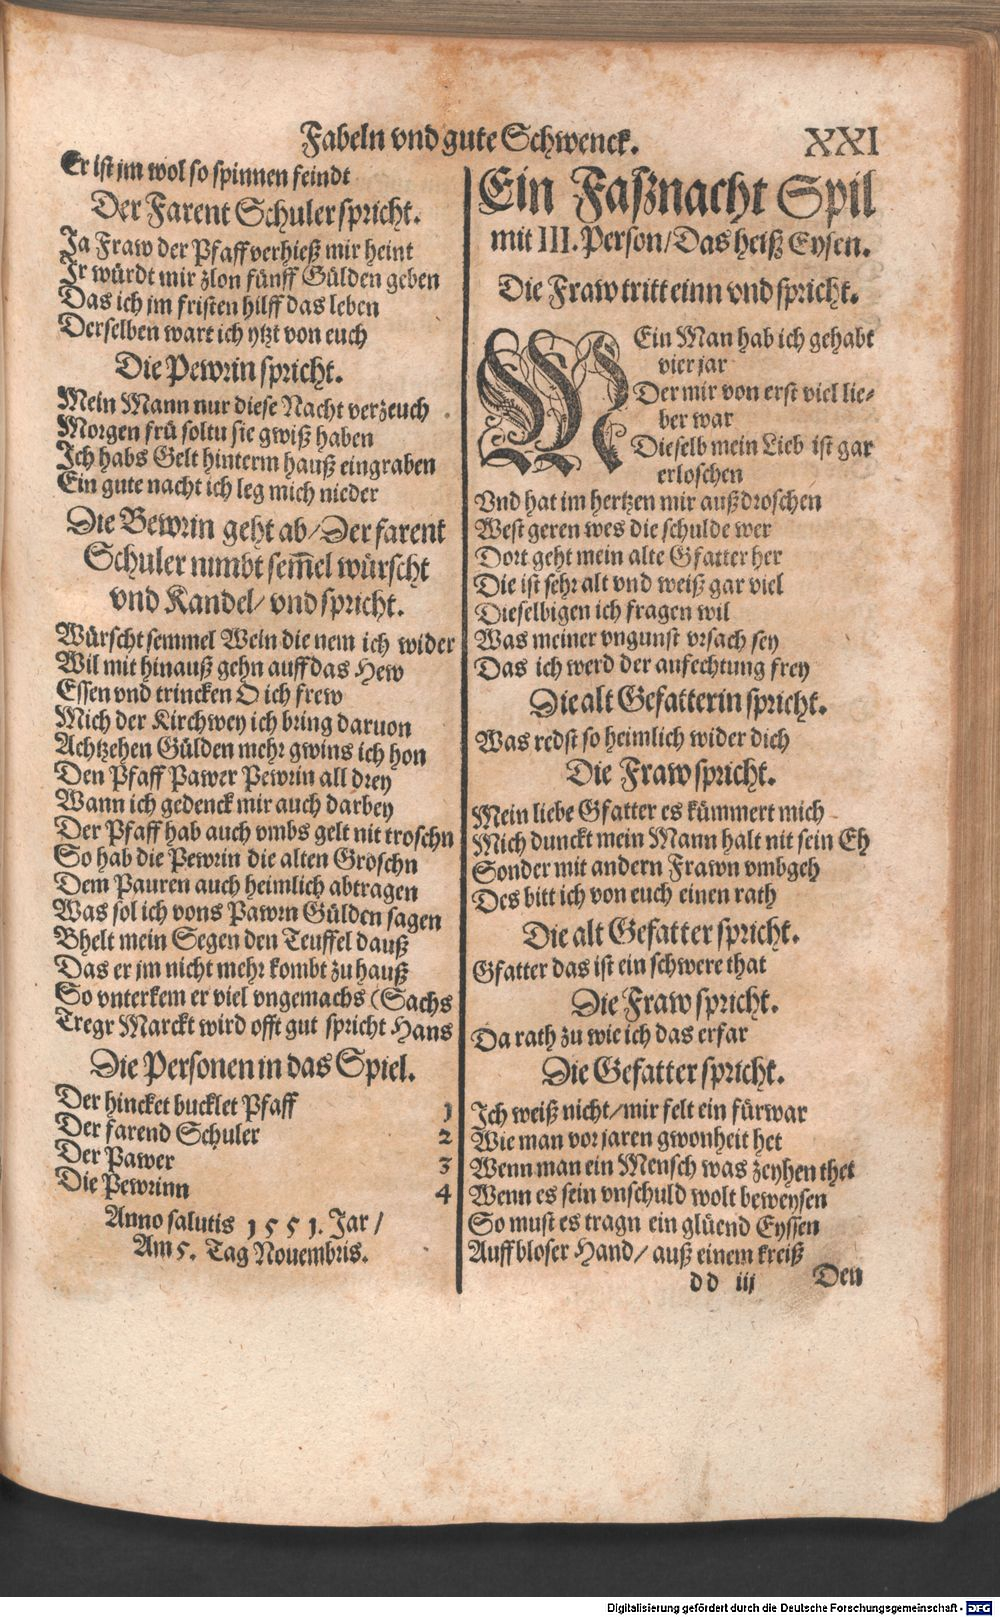 Fabeln vnd gute Schwenck. XXI
Er ist jm wol so spinnen feindt
Der Farent Schuler spricht.
Ja Fraw der Pfaff verhieß mir heint
Jr würdt mir zlon fünff Gülden geben
Das ich jm fristen hilff das leben
Derselben wart ich ytzt von euch
Die Pewrin spricht.
Mein Mann nur diese Nacht verzeuch
Morgen frü soltu sie gwiß haben
Ich habs Gelt hinterm hauß eingraben
Ein gute nacht ich leg mich nieder
Die Bewrin geht ab/ Der farent
Schuler nimbt sem̃el würscht
vnd Kandel/ vnd spricht.
Würscht semmel Wein die nem ich wider
Wil mit hinauß gehn auff das Hew
Essen vnd trincken O ich frew
Mich der Kirchwey ich bring daruon
Achtzehen Gülden mehr gwins ich hon
Den Pfaff Pawer Pewrin all drey
Wann ich gedenck mir auch darbey
Der Pfaff hab auch vmbs gelt nit troschn
So hab die Pewrin die alten Groschn
Dem Pauren auch heimlich abtragen
Was sol ich vons Pawrn Gülden sagen
Bhelt mein Segen den Teuffel dauß
Das er jm nicht mehr kombt zu hauß
So vnterkem er viel vngemachs (Sachs
Tregr Marckt wird offt gut spricht Hans
Die Personen in das Spiel.
Der hincket bucklet Pfaff 1
Der farend Schuler 2
Der Pawer 3
Die Pewrinn 4
Anno salutis 1551. Jar/
Am 5. Tag Nouembris.
Ein Faßnacht Spil
mit III. Person/ Das heiß Eysen.
Die Fraw tritt einn vnd spricht.
MEin Man hab ich gehabt
vier jar
Der mir von erst viel lie-
ber war
Dieselb mein Lieb ist gar
erloschen
Vnd hat im hertzen mir außdroschen
West geren wes die schulde wer
Dort geht mein alte Gfatter her
Die ist sehr alt vnd weiß gar viel
Dieselbigen ich fragen wil
Was meiner vngunst vrsach sey
Das ich werd der anfechtung frey
Die alt Gefatterin spricht.
Was redst so heimlich wider dich
Die Fraw spricht.
Mein liebe Gfatter es kümmert mich
Mich dunckt mein Mann halt nit sein Eh
Sonder mit andern Frawn vmbgeh
Des bitt ich von euch einen rath
Die alt Gefatter spricht.
Gfatter das ist ein schwere that
Die Fraw spricht.
Da rath zu wie ich das erfar
Die Gefatter spricht.
Ich weiß nicht/ mir felt ein fürwar
Wie man vor jaren gwonheit het
Wenn man ein Mensch was zeyhen thet
Wenn es sein vnschuld wolt beweysen
So must es tragn ein glüend Eyssen
Auff bloser Hand/ auß einem kreiß
dd iij Den
Digitalisierung gefördert durch die Deutsche Forschungsgemeinschaft - DFG